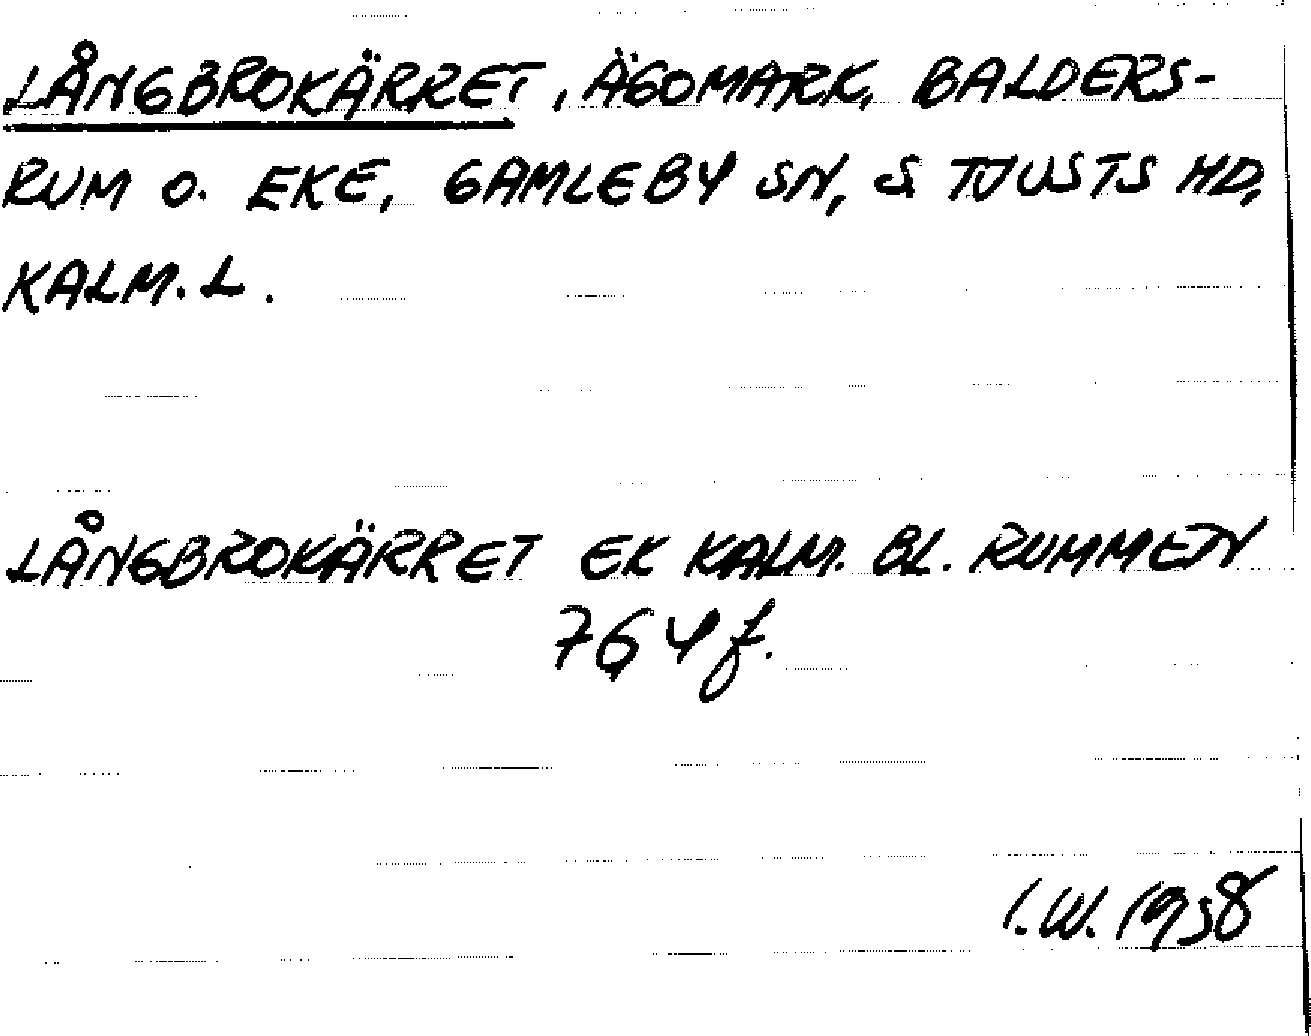 LÅNGBROKÄRRET, ÄGOMARK, BALDERS-
RUM O. EKE, GAMLEBY SN, S TJUSTS HD,
KALM. L.
LÅNGBROKÄRRET EK KALM. BL. RUMMEN
764 f.
I.W. 1938